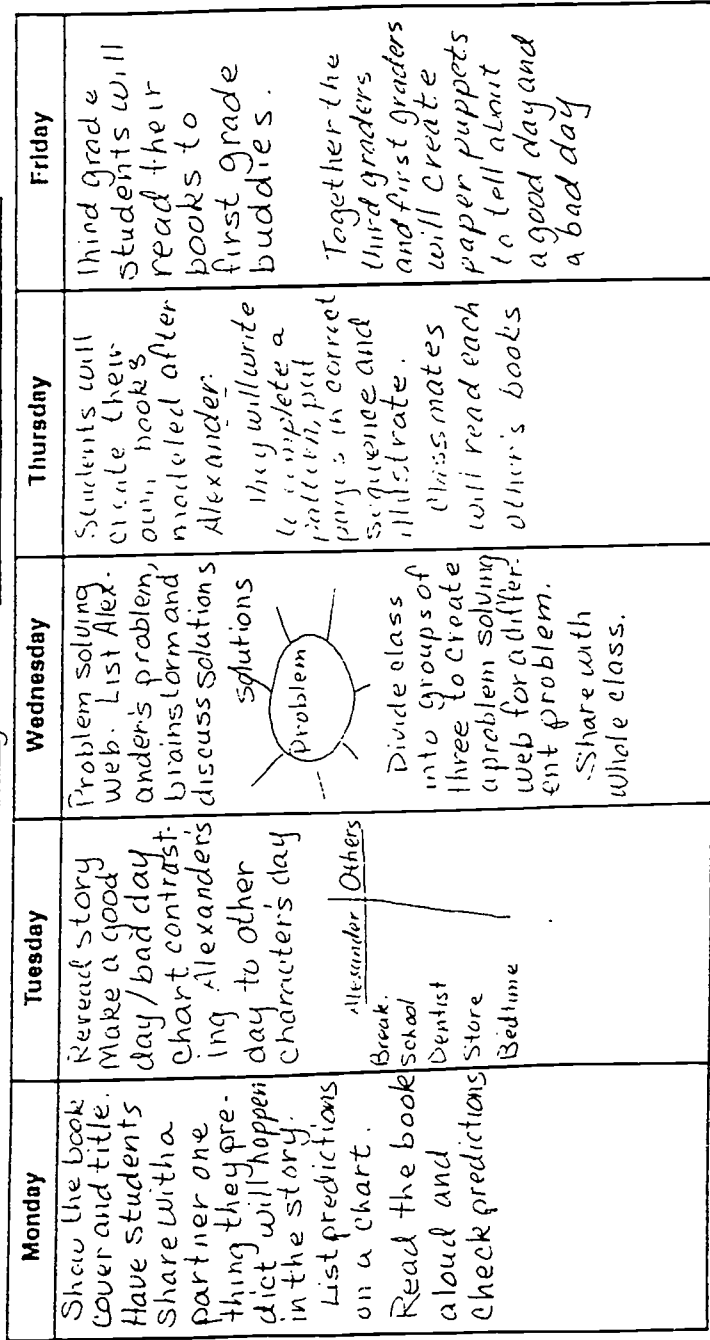 Monday
Show the book
cover and title.
Have students
share with a
partner one
thing they pre-
dict will happen
in the story.
List predictions
on a chart.
Read the book
aloud and
check predictions
Tuesday
Reread story
Make a good
day/bad day
chart contrast-
ing Alexander's
day to other
character's day
Alexander Others
Break.
School
Dentist
Store
Bedtime
Wednesday
Problem solving
web. List Alex-
ander's problem,
brainstorm and
discuss solutions
solutions
Problem
Divide class
into groups of
three to create
a problem solving
web for a differ-
ent problem.
Share with
whole class.
Thursday
Students will
create their
own books
modeled after
Alexander.
They will write
to complete a
pattern, put
pages in correct
sequence and
illustrate.
Classmates
will read each
other's books
Friday
Third grade
students will
read their
books to
first grade
buddies.
Together the
third graders
and first graders
will create
paper puppets
to tell about
a good day and
a bad day